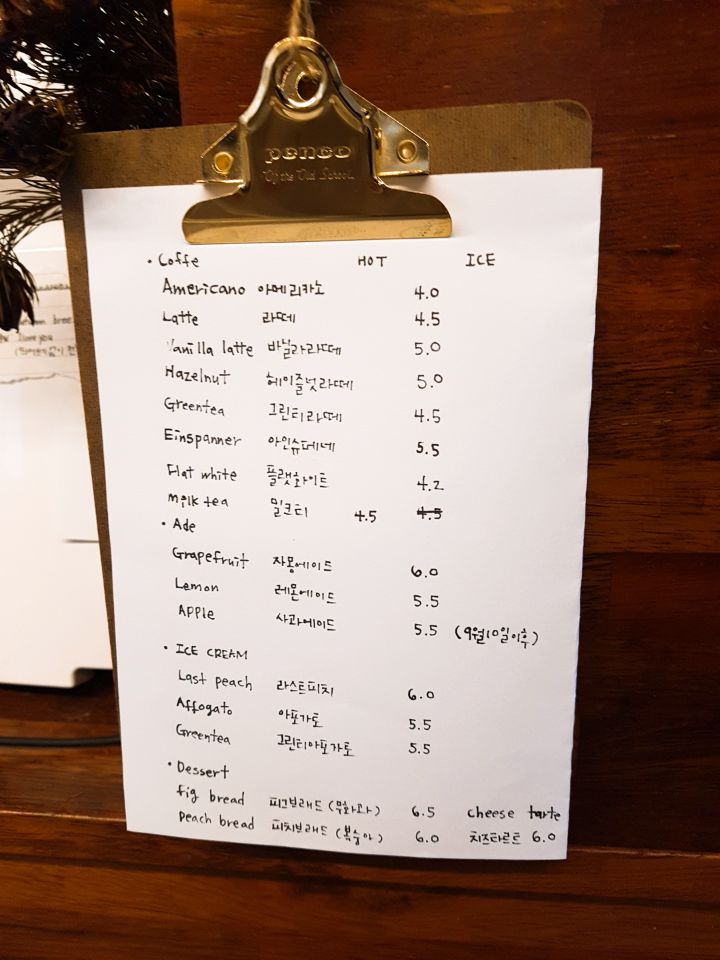 penco
"Of the Old School."
• Coffe HOT ICE
Americano 아메리카노 4.0
Latte 라떼 4.5
Vanilla latte 바닐라라떼 5.0
Hazelnut 헤이즐넛라떼 5.0
Greentea 그린티라떼 4.5
Einspanner 아인슈페너 5.5
Flat white 플랫화이트 4.2
milk tea 밀크티 4.5 4.5
• Ade
Grapefruit 자몽에이드 6.0
Lemon 레몬에이드 5.5
APPle 사과에이드 5.5 (9월10일이후)
• ICE CREAM
Last peach 라스트피치 6.0
Affogato 아포가토 5.5
Greentea 그린티아포가토 5.5
• Dessert
fig bread 피그브래드 (무화과) 6.5 cheese tarte
Peach bread 피치브래드 (복숭아) 6.0 치즈타르트 6.0